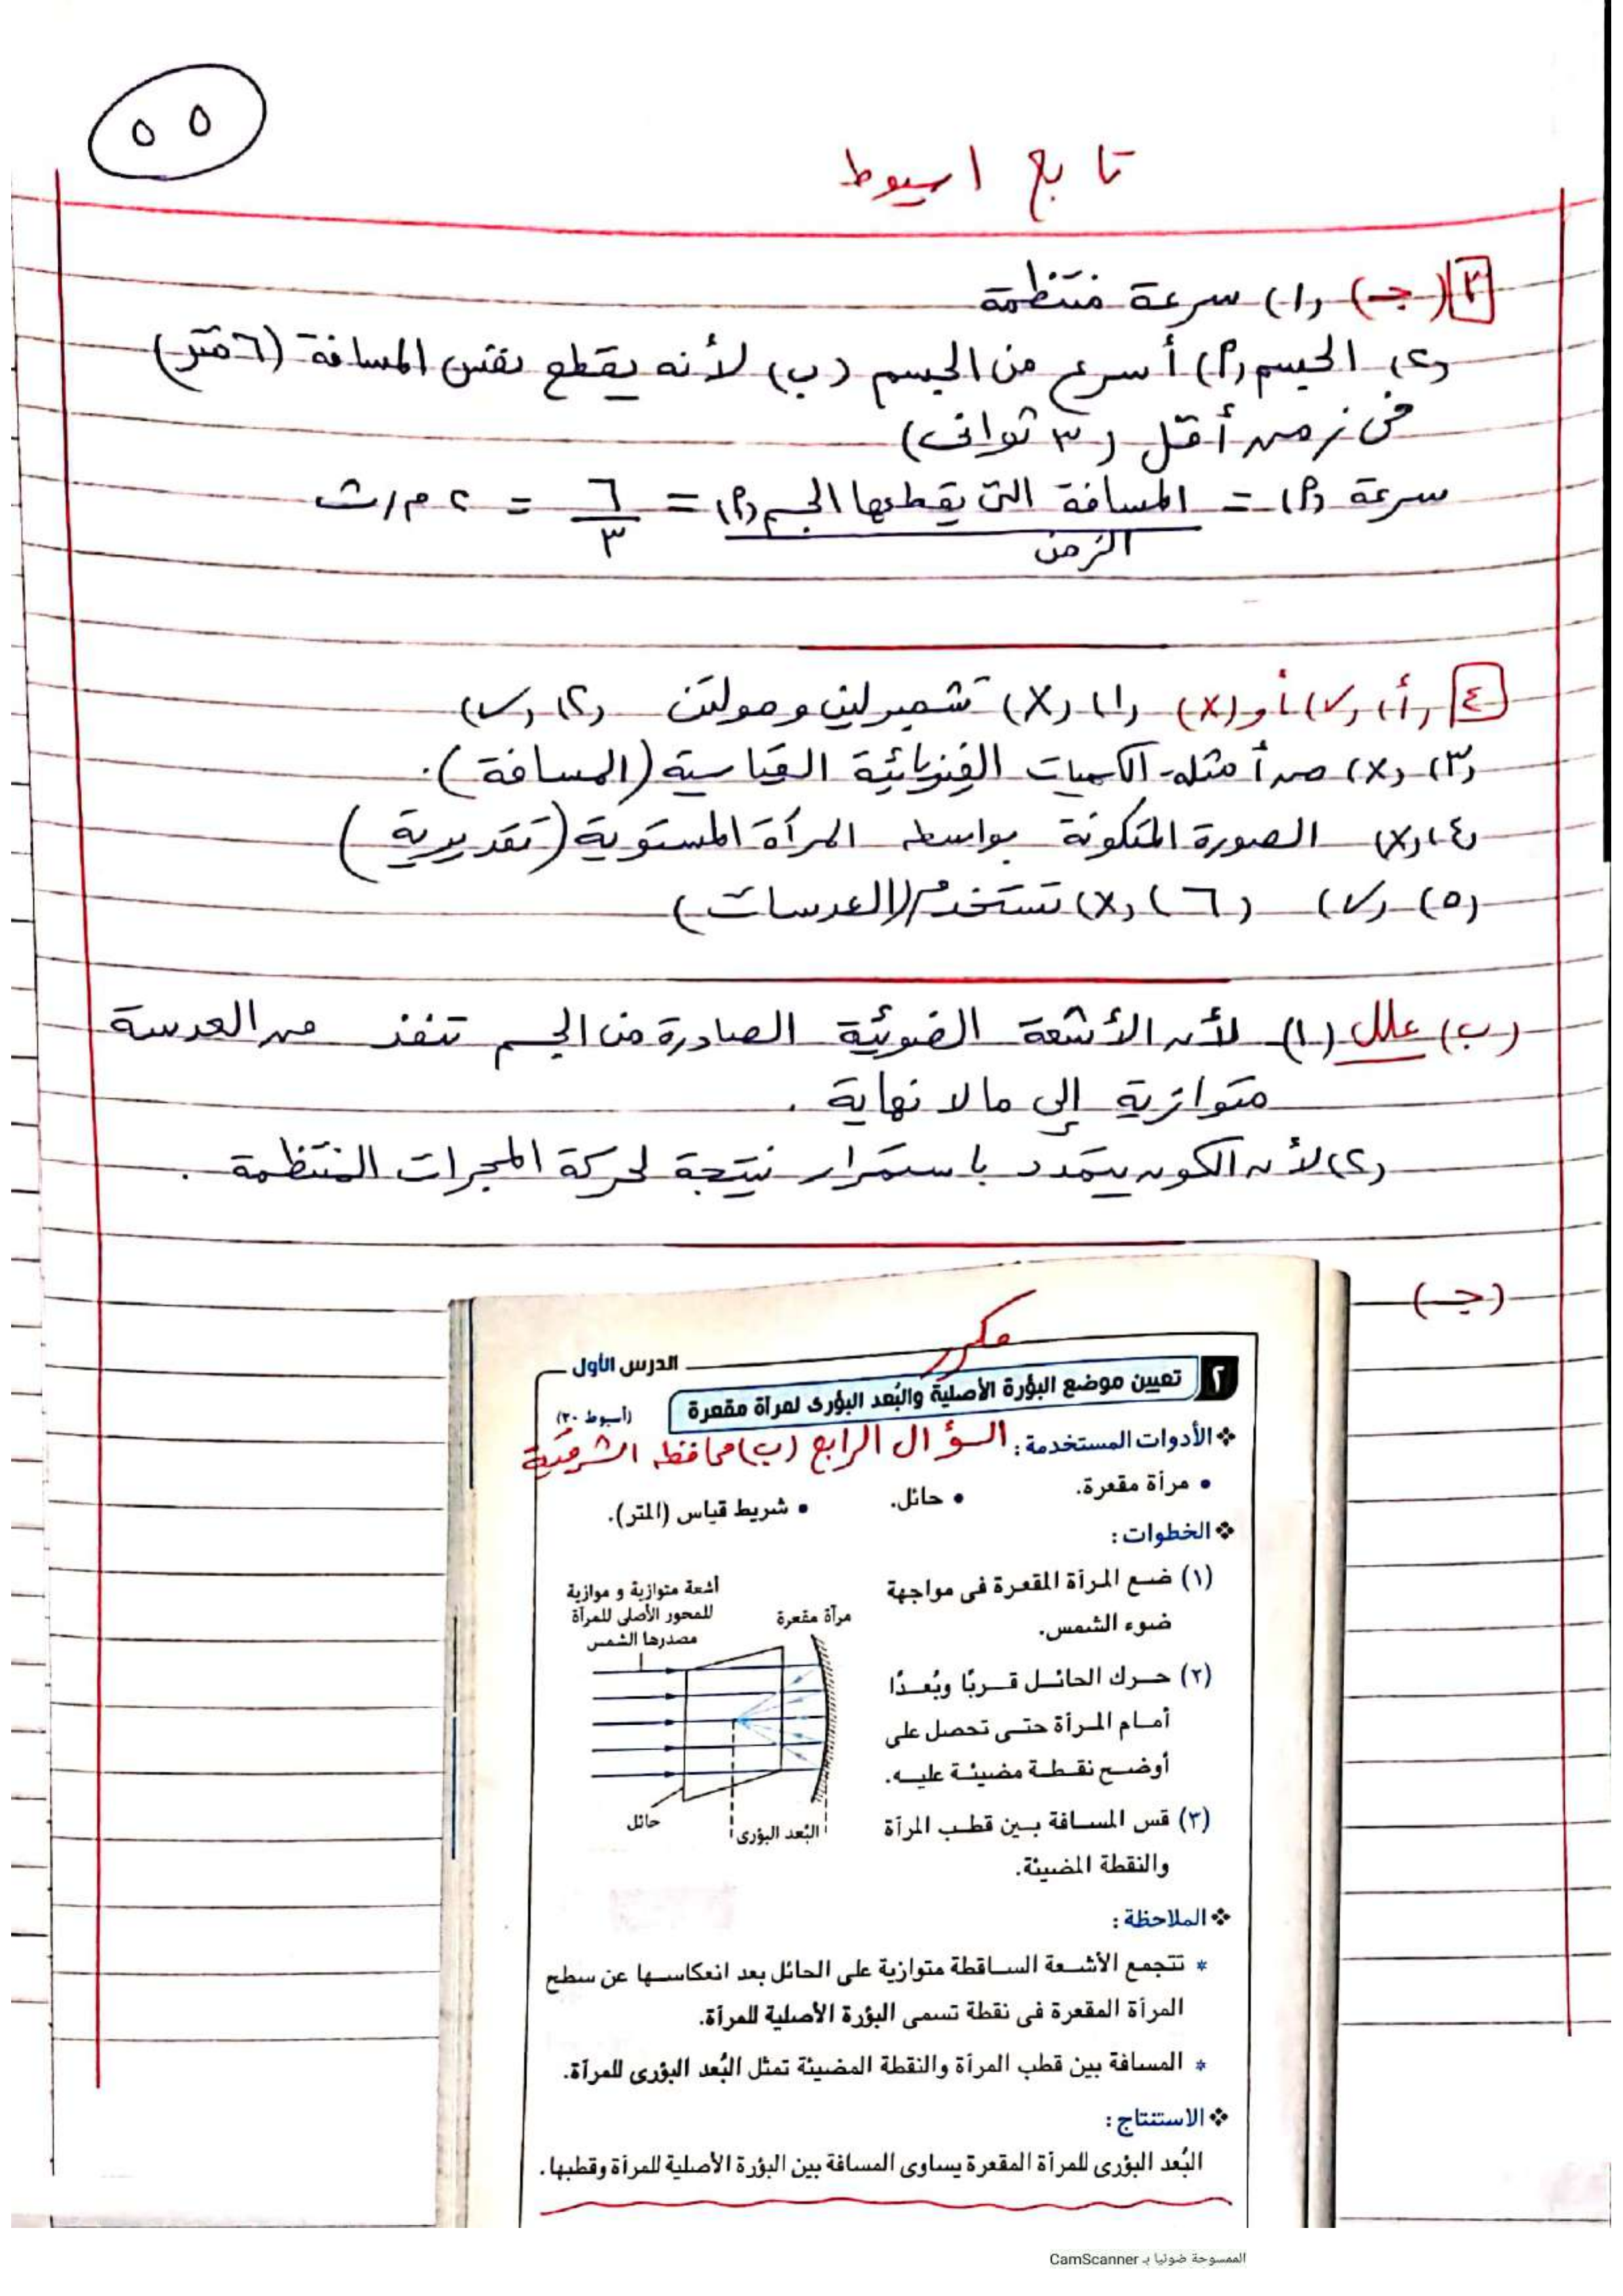 ٥٥
تابع اسيوط
٣ (جـ) (١) سرعة منتظمة
(٢) الجسم (أ) أسرع من الجسم (ب) لأنه يقطع نفس المسافة (٦ متر)
فى زمن أقل (٣ ثوانى)
سرعة (أ) = المسافة التى يقطعها الجسم (أ) = ٦ = ٢ م/ث
الزمن ٣
٤ (أ) (✓) أو (X) (١) (X) تشمبرلين ومولتن (٢) (✓)
(٣) (X) من أمثلة الكميات الفيزيائية القياسية (المسافة).
(٤) (X) الصورة المتكونة بواسطه المرآة المستوية (تقديرية)
(٥) (✓) (٦) (X) تستخدم (العدسات)
(ب) علل (١) لأن الأشعة الضوئية الصادرة من الجسم تنفذ من العدسة
متوازية إلى مالا نهاية .
(٢) لأن الكون يتمدد باستمرار نتيجة لحركة المجرات المنتظمة .
(جـ)
مكرر
الدرس الأول
٢ تعيين موضع البؤرة الأصلية والبُعد البؤرى لمرآة مقعرة
(أسيوط ٢٠)
❖ الأدوات المستخدمة : السؤال الرابع (ب) محافظه الشرقية
• مرآة مقعرة. • حائل. • شريط قياس (المتر).
❖ الخطوات :
(١) ضع المرآة المقعرة فى مواجهة
ضوء الشمس.
(٢) حرك الحائل قربًا وبُعدًا
أمام المرآة حتى تحصل على
أوضح نقطة مضيئة عليه.
(٣) قس المسافة بين قطب المرآة
والنقطة المضيئة.
أشعة متوازية و موازية
للمحور الأصلى للمرآة
مصدرها الشمس
مرآة مقعرة
حائل
البُعد البؤرى
❖ الملاحظة :
* تتجمع الأشعة الساقطة متوازية على الحائل بعد انعكاسها عن سطح
المرآة المقعرة فى نقطة تسمى البؤرة الأصلية للمرآة.
* المسافة بين قطب المرآة والنقطة المضيئة تمثل البُعد البؤرى للمرآة.
❖ الاستنتاج :
البُعد البؤرى للمرآة المقعرة يساوى المسافة بين البؤرة الأصلية للمرآة وقطبها.
الممسوحة ضوئيا بـ CamScanner